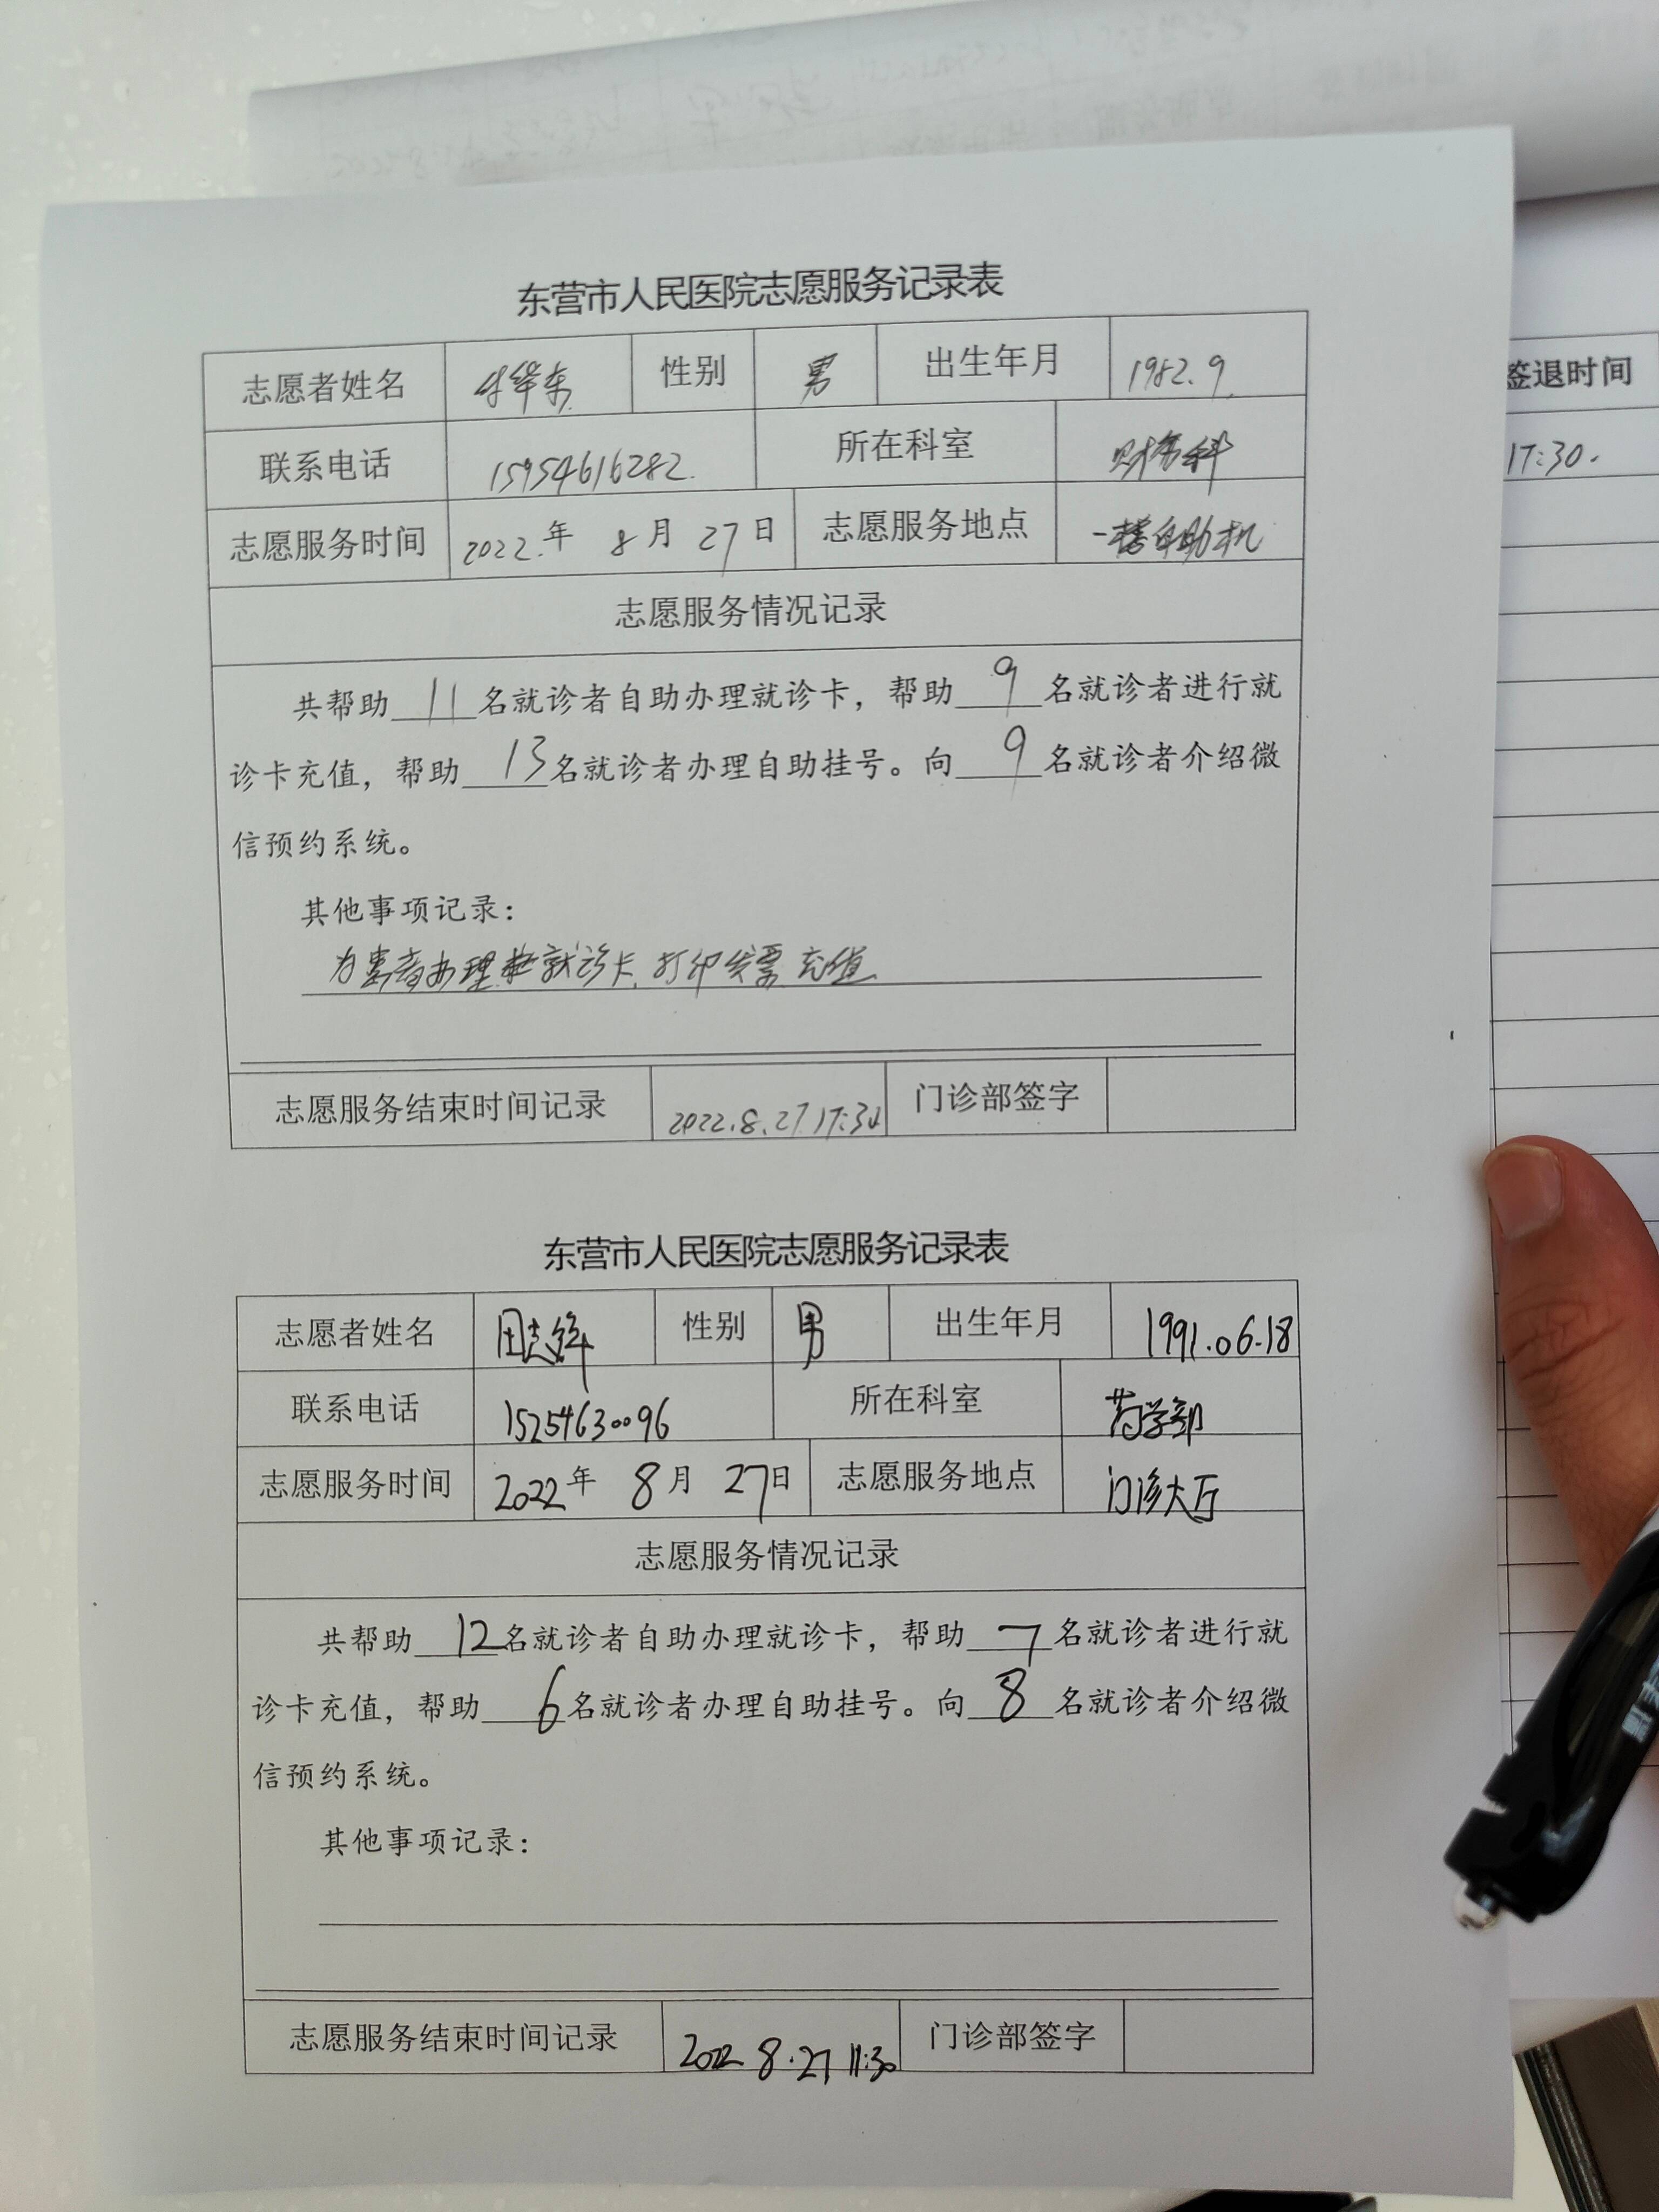 东营市人民医院志愿服务记录表
志愿者姓名 华东 性别 男 出生年月 1982.9.
联系电话 15954616282. 所在科室 财务科
志愿服务时间 2022.年 8月 27日 志愿服务地点 一楼自助机
志愿服务情况记录
共帮助 11 名就诊者自助办理就诊卡，帮助 9 名就诊者进行就
诊卡充值，帮助 13 名就诊者办理自助挂号。向 9 名就诊者介绍微
信预约系统。
其他事项记录：
为患者办理就诊卡,打印发票 充值
志愿服务结束时间记录 2022.8.27 17:30 门诊部签字
签退时间
17:30.
东营市人民医院志愿服务记录表
志愿者姓名 田志 性别 男 出生年月 1991.06.18
联系电话 15254630096 所在科室 药学部
志愿服务时间 2022年 8月 27日 志愿服务地点 门诊大厅
志愿服务情况记录
共帮助 12 名就诊者自助办理就诊卡，帮助 7 名就诊者进行就
诊卡充值，帮助 6 名就诊者办理自助挂号。向 8 名就诊者介绍微
信预约系统。
其他事项记录：
志愿服务结束时间记录 2022 8.27 11:30 门诊部签字